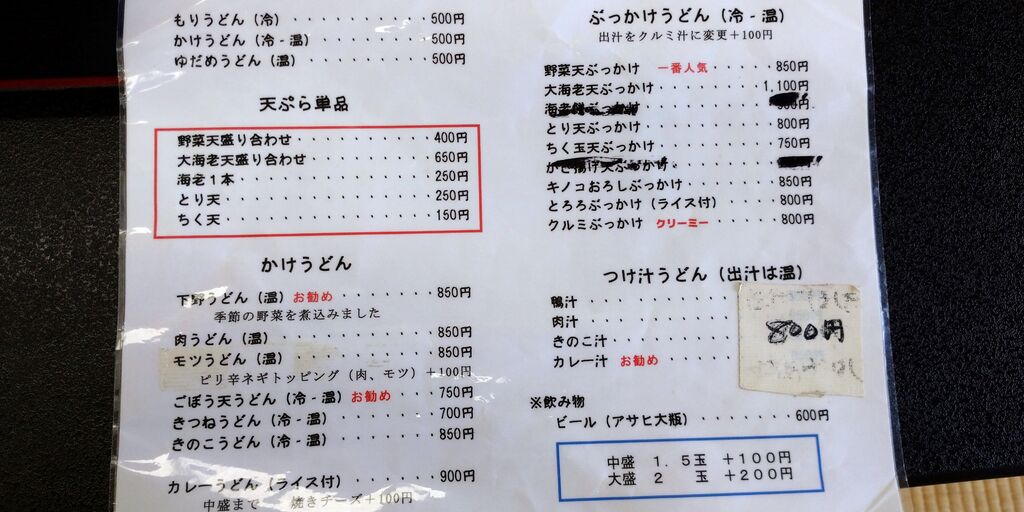 もりうどん（冷）・・・・・・・・・500円
かけうどん（冷 - 温）・・・・・・・500円
ゆだめうどん（温）・・・・・・・・500円
天ぷら単品
野菜天盛り合わせ・・・・・・・・・400円
大海老天盛り合わせ・・・・・・・・650円
海老１本・・・・・・・・・・・・・250円
とり天・・・・・・・・・・・・・・250円
ちく天・・・・・・・・・・・・・・150円
かけうどん
下野うどん（温）お勧め・・・・・・850円
季節の野菜を煮込みました
肉うどん（温）・・・・・・・・・・850円
モツうどん（温）・・・・・・・・・850円
ピリ辛ネギトッピング（肉、モツ）＋100円
ごぼう天うどん（冷 - 温）お勧め・・・750円
きつねうどん（冷 - 温）・・・・・・700円
きのこうどん（冷 - 温）・・・・・・850円
カレーうどん（ライス付）・・・・・900円
中盛まで 焼きチーズ＋100円
ぶっかけうどん（冷 - 温）
出汁をクルミ汁に変更＋100円
野菜天ぶっかけ 一番人気・・・・・850円
大海老天ぶっかけ・・・・・・・・1,100円
とり天ぶっかけ・・・・・・・・・800円
ちく玉天ぶっかけ・・・・・・・・750円
キノコおろしぶっかけ・・・・・・850円
とろろぶっかけ（ライス付）・・・・800円
クルミぶっかけ クリーミー・・・・800円
つけ汁うどん（出汁は温）
鴨汁・・・・・・・・・・・
肉汁・・・・・・・・・・・
きのこ汁・・・・・・・・・
カレー汁 お勧め・・・・・
800円
※飲み物
ビール（アサヒ大瓶）・・・・・・・600円
中盛 １．５玉 ＋100円
大盛 ２ 玉 ＋200円